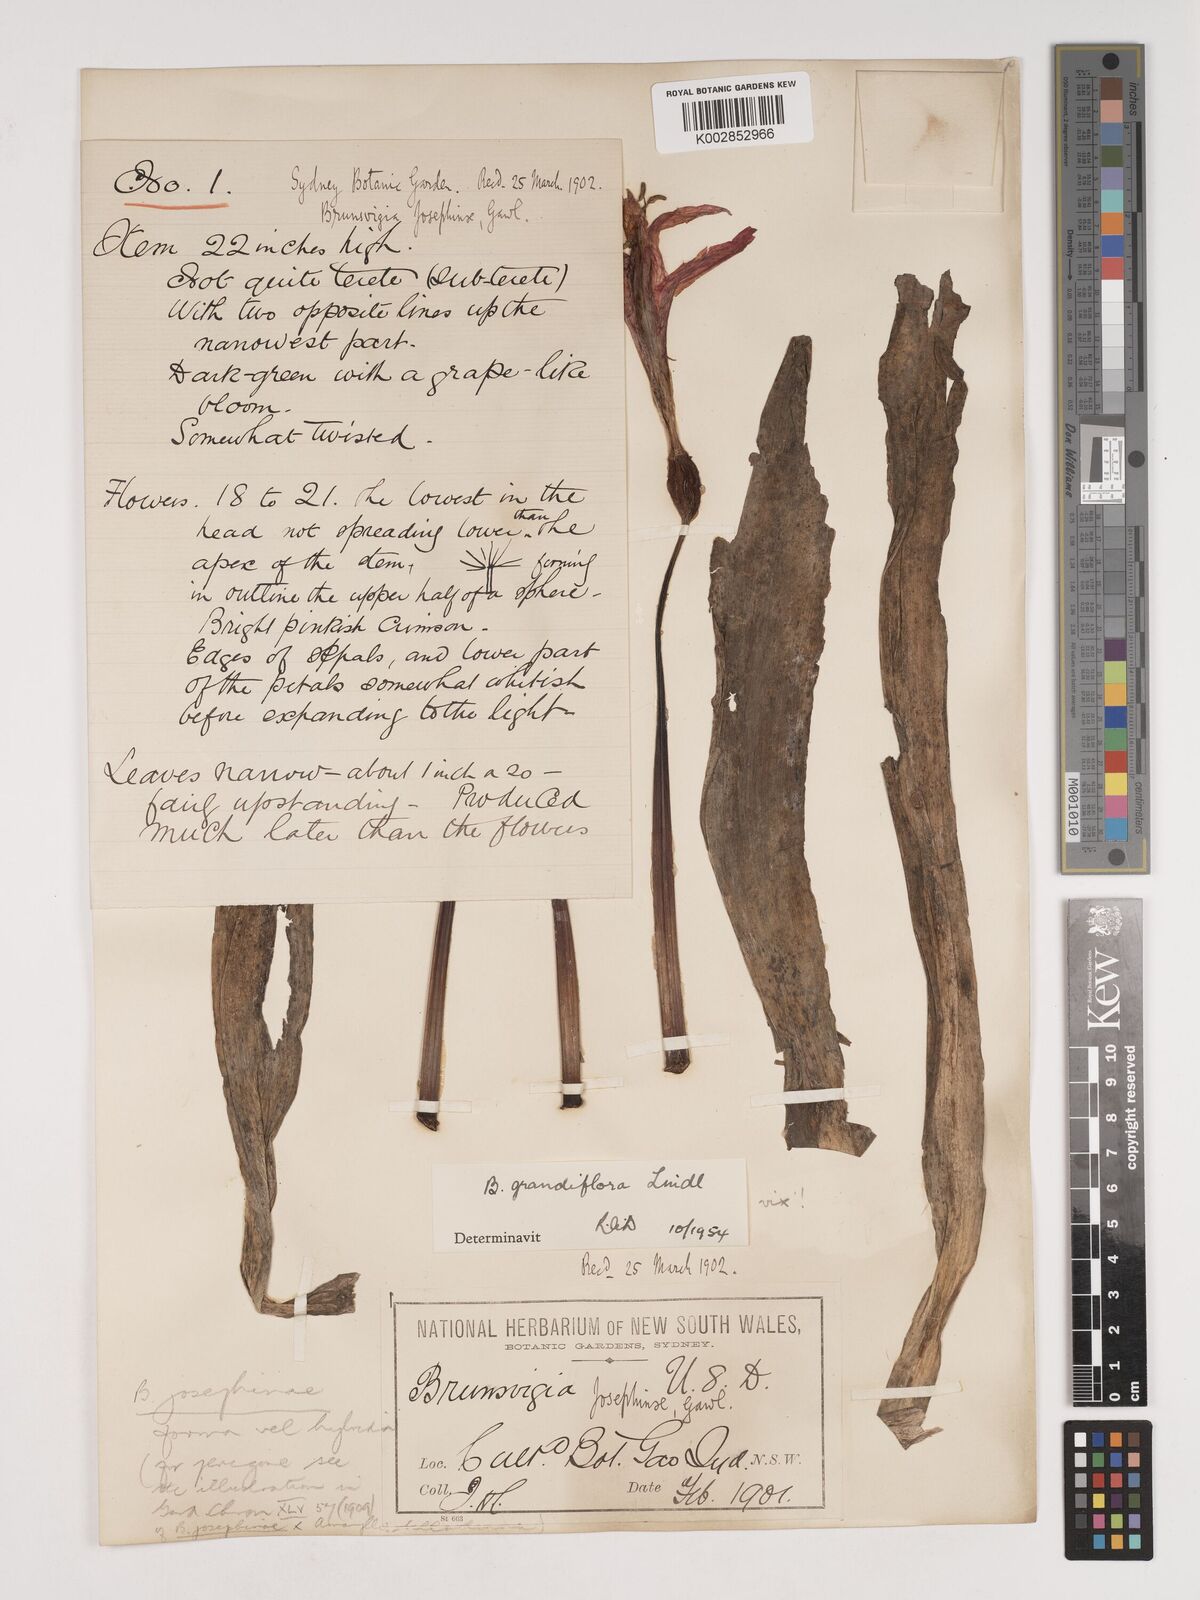 ROYAL BOTANIC GARDENS KEW
K002852966
No. 1.
Sydney Botanic Garden. Recd. 25 March 1902.
Brunsvigia Josephinæ, Gawl.
Stem 22 inches high.
Not quite terete (sub-terete)
With two opposite lines up the
narrowest part.
Dark-green with a grape-like
bloom.
Somewhat twisted.
Flowers. 18 to 21. The lowest in the
head not spreading lower than the
apex of the stem, forming
in outline the upper half of a sphere.
Bright pinkish crimson.
Edges of sepals, and lower part
of the petals somewhat whitish
before expanding to the light
Leaves narrow - about 1 inch a so -
upstanding - Produced
much later than the flowers
B. grandiflora Lindl
vix!
Determinavit 10/1954
Recd. 25 March 1902.
NATIONAL HERBARIUM OF NEW SOUTH WALES,
BOTANIC GARDENS, SYDNEY.
Brunsvigia
Josephinæ, Gawl.
Loc. Cult. Bot. N.S.W.
Coll.
Date Feb. 1901.
St 603
B. josephinae
forma vel hybrida
(for perigone see
the illustration in
Gard. Chron XLV 57 (1909)
of B. josephinae x
inches
centimetres
Density
Don Williams
M001010
Kew
Royal Botanic Gardens
0 1 2 3 4 5 6 7 8 9 10
cm
copyright reserved